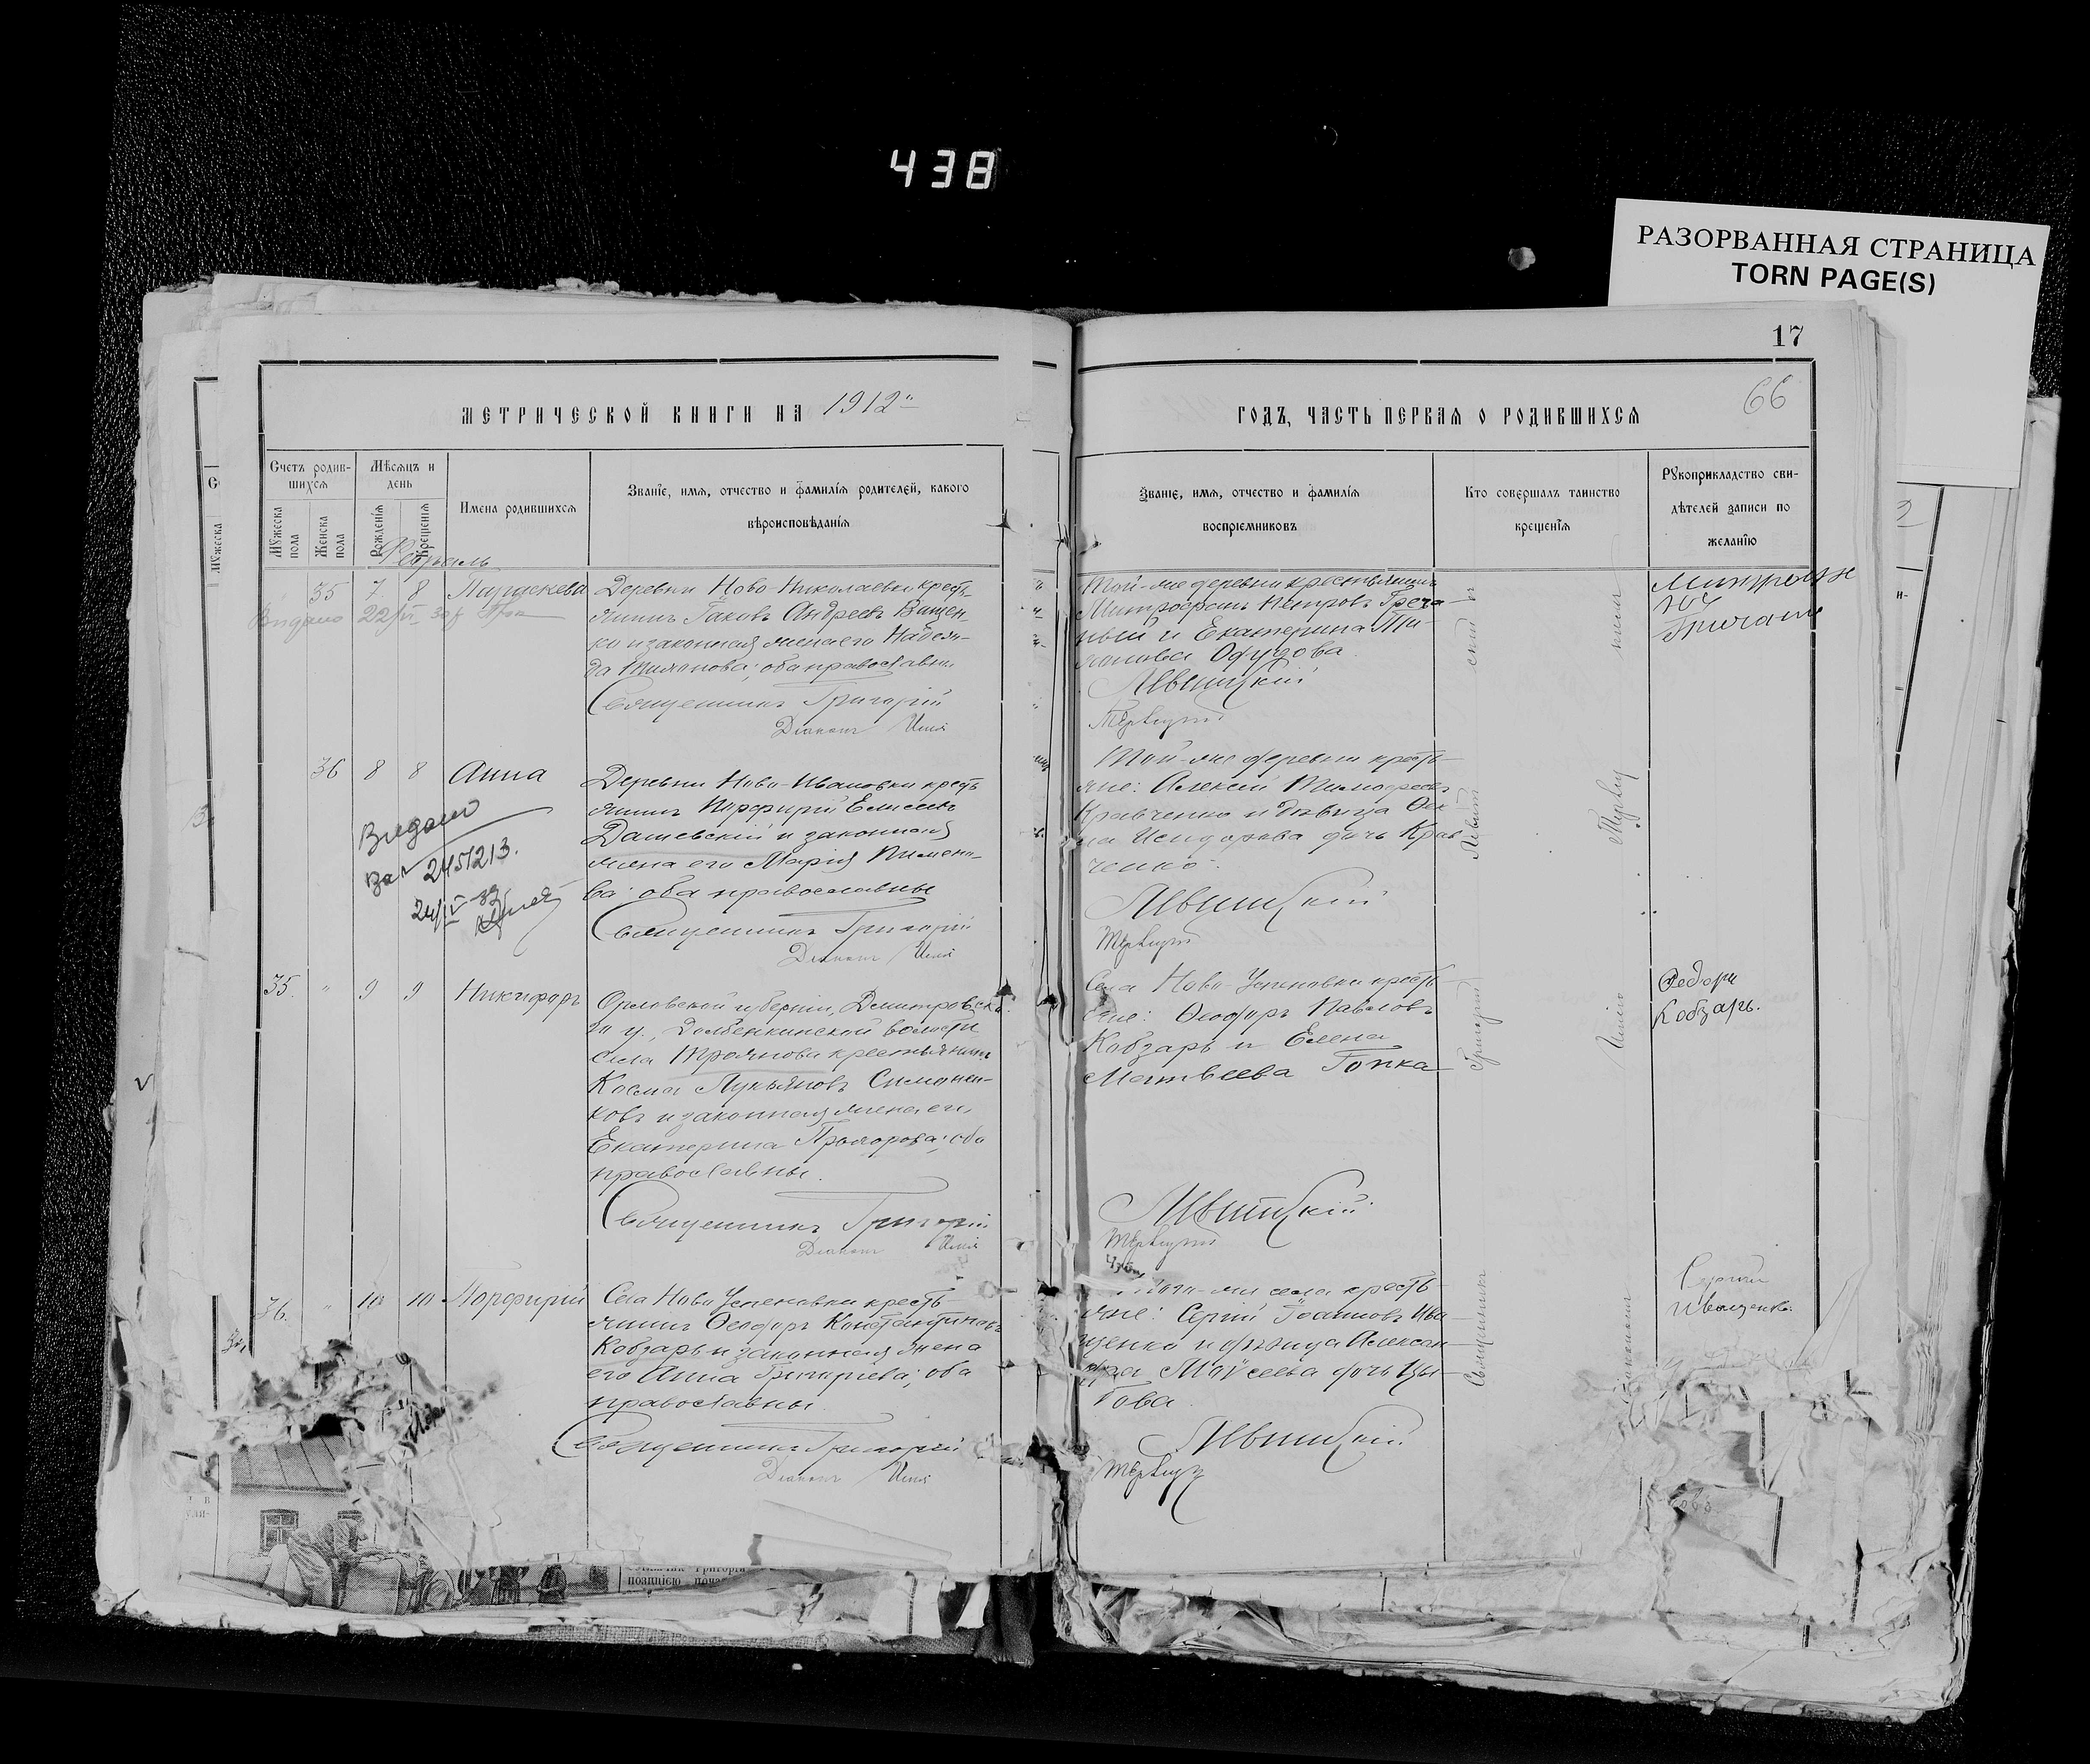 438
РАЗОРВАННАЯ СТРАНИЦА
TORN PAGE(S)
17
66
МЕТРИЧЕСКОЙ КНИГИ НА 1912
ГОДЪ, ЧАСТЬ ПЕРВАЯ О РОДИВШИХСЯ
Счетъ родив-
шихся
Мужеска
пола
Женска
пола
Мѣсяцъ и
день
Рожденія
Крещенія
Имена родившихся
Званіе, имя, отчество и фамилія родителей, какого
вѣроисповѣданія
Званіе, имя, отчество и фамилія
воспріемниковъ
Кто совершалъ таинство
крещенія
Рукоприкладство сви-
дѣтелей записи по
желанію
Февраль
35 7 8 Параскева
Деревни Ново-Николаевки кресть-
янинъ Іаковъ Андреевъ Ващен-
ко и законная жена его Надеж-
да; оба православны
Священникъ Григорій
Діаконъ Илія
Той-же деревни крестьянинъ
Митрофанъ Петровъ Греча-
ный и Екатерина
Левицкій
36 8 8 Анна
Видано
24
Деревни Ново-Ивановки кресть
янинъ Порфирій Елисеевъ
Дашевскій и законная
жена его Марія Пимено-
ва; оба православны
Священникъ Григорій
Діаконъ Илія
Той-же деревни кресть-
яне: Алексій Тимофеевъ
Кравченко и дѣвица
Исидорова дочь Крав-
ченко.
Левицкій
35. " 9 9 Никифоръ
Орловской губерніи, Дмитровска-
го у., Долбенкинской волости
села Трояновa крестьянинъ
Косма Лукьяновъ Симонен-
ковъ и законная жена его
Екатерина; оба
православны.
Священникъ Григорій
Діаконъ Илія
Села Ново-Успеновки кресть-
яне: Ѳеодоръ Павловъ
Кобзарь и Елена
Матвѣева Гопка
Левицкій
Федоръ
Кобзарь.
36. " 10 10 Порфирій
Села Ново Успеновки кресть-
янинъ Ѳеодоръ Константиновъ
Кобзарь и законная жена
его Анна Григорьева; оба
православны.
Священникъ Григорій
Діаконъ Илія
села кресть-
яне: Сергій Іоанновъ Ива-
щенко и дѣвица Алексан-
дра Моѵсеева дочь Цы-
бова.
Левицкій
Сергій
Иващенко.
Священникъ Григорій Левит скій
Діаконъ